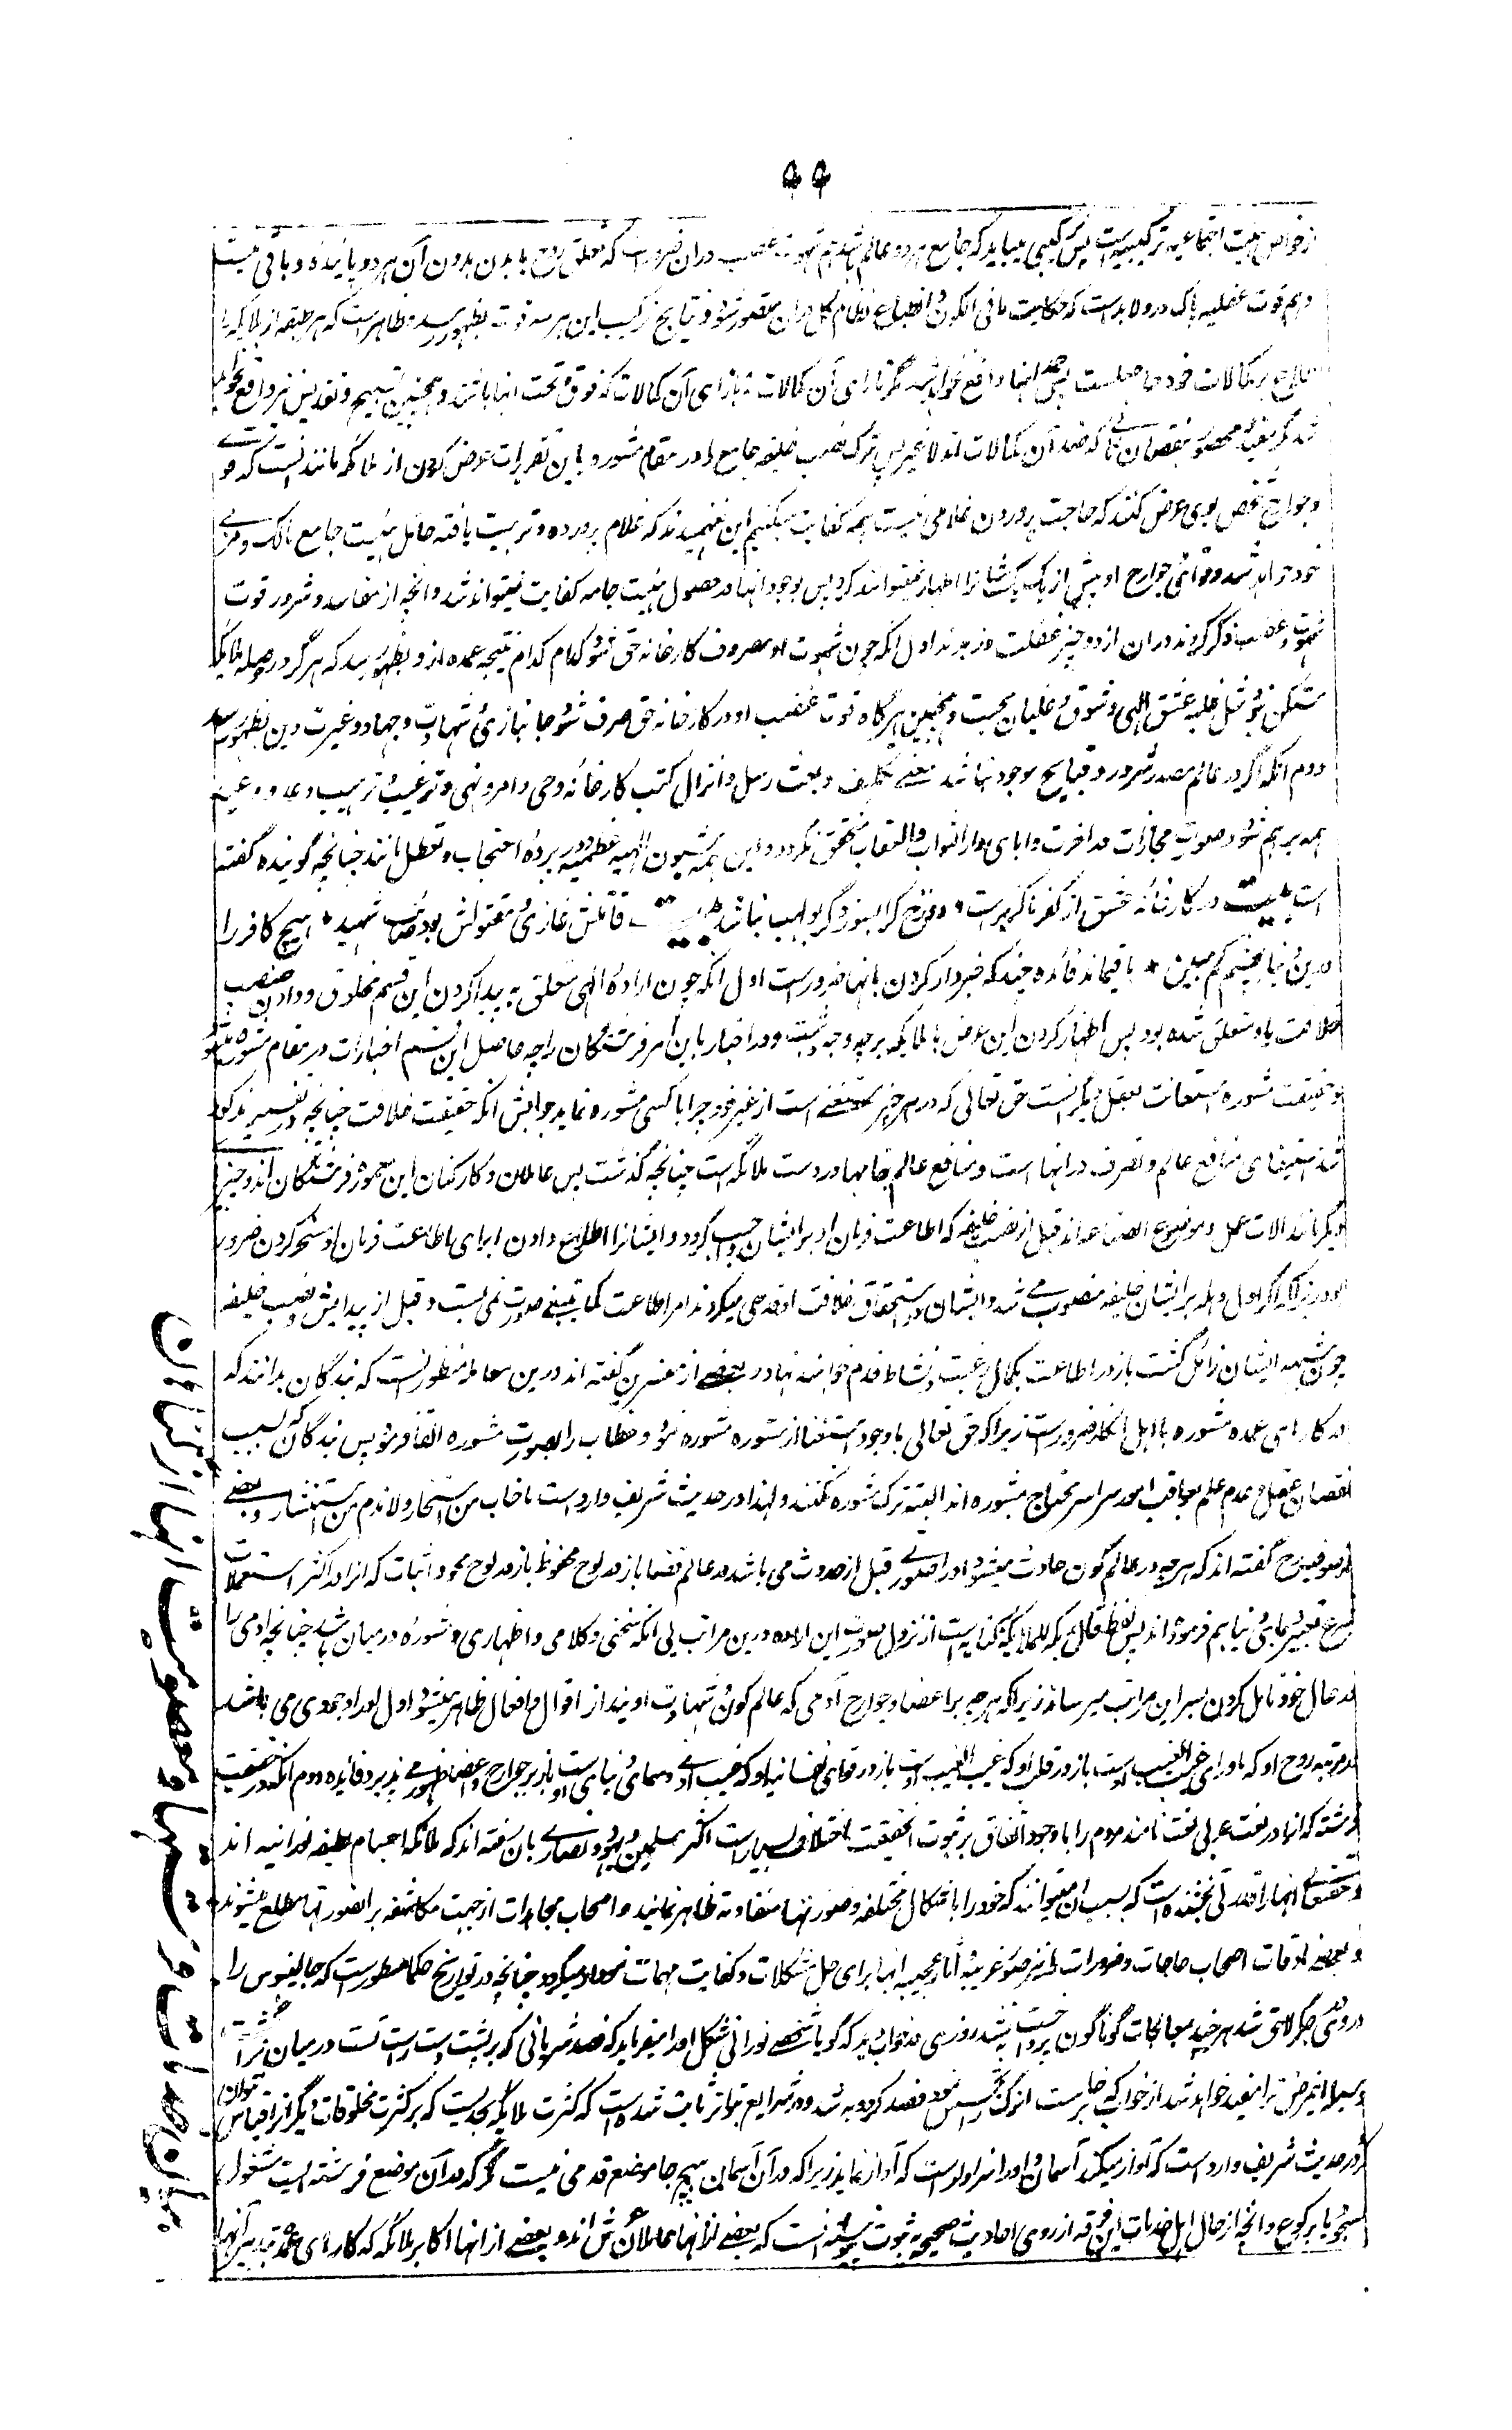 از خواص هیئت اجتماعیه ترکیبیه است پس کیبی میباید که جامع هر دو عالم باشد هم شهوت و غضب دران ضرورست که تعلق روح با بدن بدون آن هر دو پاینده و باقی نیست
و هم قوت عقلیه پاک در و لابد است که حکایت ما فی الکون و انطباع نظام کل دران متصور شود و نتایج ترکیب این هر سه قوت بظهور رسد و ظاهر است که هر طبقه از ملایکه را
اطلاع بر کمالات خود حاصلست پس حمد انها واقع نخواهد شد مگر بازای آن کمالات نه بازای آن کمالات که فوق و تحت انها باشند و همچنین تسبیح و تقدیس نیز واقع نخواهد
شد مگر مقید و محصور بنقصان که ضد آن کمالات اند لا غیر پس ترک نصب خلیفه جامع را در مقام مشوره باین تقریرات عرض کردن از ملائکه مانند انست که
و جوارح شخص بوی عرض کنند که حاجت پروردن غلامی نیست همه کفایت میکنیم این نفهمیدند که غلام پرورده و تربیت یافته حامل هیئت جامع مالک و مربی
خود خواهد شد و قوای جوارح او بیش از یک یک شان را اظهار نمیتوانند کرد پس بوجود انها در حصول هیئت جامعه کفایت نمیتواند شد و انچه از مفاسد و شرور قوت
شهوت و غضب ذکر کردند دران از دو چیز غفلت ورزیدند اول انکه چون شهوت او مصروف کارخانه حق شود کدام کدام نتیجه عمده از و بظهور رسد که هرگز در حوصله ملایکه
متمکن نبود مثل غلبه عشق الهی و شوق و غلیان محبت و همچنین هرگاه قوت غضب او در کارخانه حق صرف شود جانبازی و شهادت و جهاد و غیرت دین بظهور رسد
دوم انکه اگر در عالم مصدر شرور و قبایح موجود نباشد معنی تکلیف و بعثت رسل و انزال کتب کارخانه وحی و امر و نهی و ترغیب و ترهیب و وعد و وعید
همه برهم شود و صورت مجازات در اخرت و انبای دار الثواب و العقاب متحقق نگردد و این همه شیون الهیه عظیمه در پرده احتجاب و تعطل مانند چنانچه گوینده گفته
است بیت در کارخانه عشق از کفر ناگزیر است * دوزخ کرا بسوزد گر بولهب نباشد * بیت قاتلش غازی و مقتولش بود صاحب شهید * هیچ کافر را
درین دنیا بچشم کم مبین * باقیماند فائده چند که خبردار کردن بانها ضرورست اول انکه چون اراده الهی متعلق به پیدا کردن این قسم مخلوق و دادن منصب
خلافت باو متعلق شده بود پس اظهار کردن این عرض با ملایکه بر چه وجه است و در اخبار باین امر فرشتگان را چه حاصل این قسم اخبارات در مقام مشوره میشود
و حقیقت مشوره استعانت بعقل دیگر انست حق تعالی که در هر چیز مستغنی است از غیر خود چرا با کسی مشوره نماید جوابش انکه حقیقت خلافت چنانچه در تفسیر مذکور
شد استیفای منافع عالم و تصرف در انها است و منافع عالم بتمامها در دست ملائکه است چنانچه گذشت پس عاملان و کارکنان این معموره فرشتگان اند و چیزهای
دیگر مانند الات عمل و موضوع الصناعه اند قبل از نصب خلیفه که اطاعت فرمان او بر ایشان واجب گردد و ایشانرا اطلاع دادن و برای اطاعت فرمان او مسخر کردن ضرور
بود زیراکه اگر اول وهله بر ایشان خلیفه منصوب می شد و ایشان در استحقاق خلافت او قدحی میکردند امر اطاعت کما ینبغی صورت نمی بست و قبل از پیدایش و نصب خلیفه
چون شبهه ایشان زائل گشت باز در اطاعت بکمال رغبت و نشاط قدم خواهند نهاد و بعضی از مفسرین گفته اند درین معامله منظور انست که بندگان بدانند که
در کارهای عمده مشوره با اهل انکار ضرورست زیرا که حق تعالی با وجود استغنا از مشوره مشوره نمود و خطاب را بصورت مشوره القا فرمود پس بندگان که بسبب
نقصان عقل و عدم علم بعواقب امور سراسر محتاج مشوره اند البته ترک مشوره نکنند و لهذا در حدیث شریف وارد است ما خاب من استخار و لا ندم من استشار و بعضی
از صوفیه رح گفته اند که هر چه در عالم کون حادث میشود او را صورتی قبل از حدوث می باشد در عالم قضا باز در لوح محفوظ باز در لوح محو و اثبات که انرا در اکثر استعمالات
شرع تعبیر بسمای دنیا هم فرموده اند پس لفظ قال ربک للملائکه کنایه است از نزول صورت این اراده درین مراتب بی انکه سخنی و کلامی و اظهاری و مشوره در میان باشد چنانچه ادمی را
در حال خود تامل کردن بسر این مراتب میرساند زیرا که هر چه بر اعضا و جوارح آدمی که عالم کون و شهادت اویند از اقوال و افعال ظاهر میشود اول او را وجودی می باشد
در مرتبه روح او که ماورای غیب الغیب اوست باز در قلب او که غیب الغیب اوست باز در قوای نفسانیه او که غیب ادنی و سمای دنیای اوست باز بر جوارح و اعضا ظهور می پذیرد فائده دوم انکه در حقیقت
فرشته که انرا در لغت عربی ملک نامند مردم را با وجود اتفاق بر ثبوت حقیقت اختلاف بسیار است اکثر مسلمین و یهود و نصاری بان رفته اند که ملائکه اجسام لطیفه نورانیه اند
و حقتعالی انها را قدرتی بخشیده است که بسبب ان میتوانند که خود را باشکال مختلفه و صورتهای متفاوته ظاهر نمایند و اصحاب مجاهدات از جهت مکاشفه بران صورتها مطلع میشوند
و بعضی اوقات اصحاب حاجات و ضرورات را نیز صور غریبه و اثار عجیبه انها برای حل مشکلات و کفایت مهمات نمودار میگردد چنانچه در تواریخ حکما مسطور است که جالینوس را
دردی جگر لاحق شد هر چند معالجات گوناگون پرداخت به نشد روزی در خواب دید که گویا شخصی نورانی شکل او را میفرماید که فصد شریانی که بر پشت دست راست تست در میان
ازاله این مرض ترا مفید خواهد شد از خواب که برخاست از رگ فصد کرد و به شد و در شرایع بتواتر ثابت شده است که کثرت ملائکه بحدیست که بر کثرت مخلوقات دیگر انرا قیاس نتوان
کرد در حدیث شریف وارد است که آواز میکند آسمان و او را سزاوار است که آواز نماید زیراکه در آن آسمان هیچ جا موضع قدمی نیست مگر که در آن موضع فرشته ایست مشغول
بسجود یا برکوع و انچه از حال اهل خدمات این فرقه از روی احادیث صحیحه به ثبوت پیوسته انست که بعضی از انها حاملان عرش اند و بعضی از انها اکابر ملائکه که کارهای عمده بتدبیر آنها